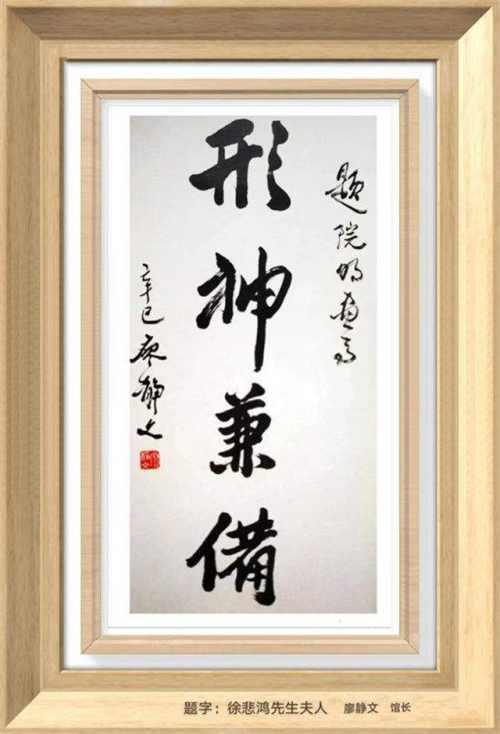 题院明画马
形神兼備
辛巳 廖静文
题字：徐悲鸿先生夫人 廖静文 馆长